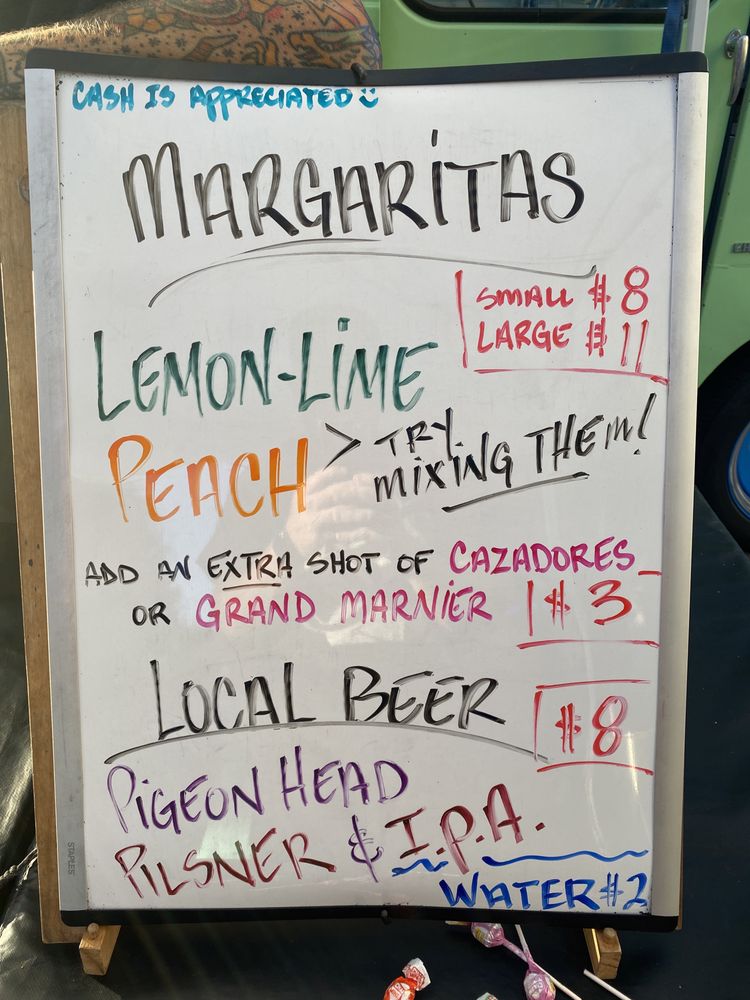 CASH IS APPRECIATED
MARGARITAS
SMALL $8
LARGE $11
LEMON-LIME
PEACH > TRY
MIXING THEM!
ADD AN EXTRA SHOT OF CAZADORES
OR GRAND MARNIER $3
LOCAL BEER $8
PIGEON HEAD
PILSNER & I.P.A.
WATER $2
STAPLES